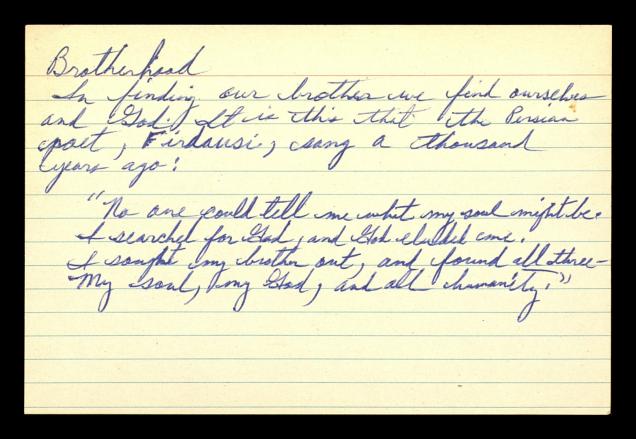 Brotherhood
In finding our brother we find ourselves
and God. It is this that the Persian
poet, Firdausi, sang a thousand
years ago:
"No one could tell me what my soul might be.
I searched for God, and God eluded me.
I sought my brother out, and found all three—
My soul, my God, and all humanity."